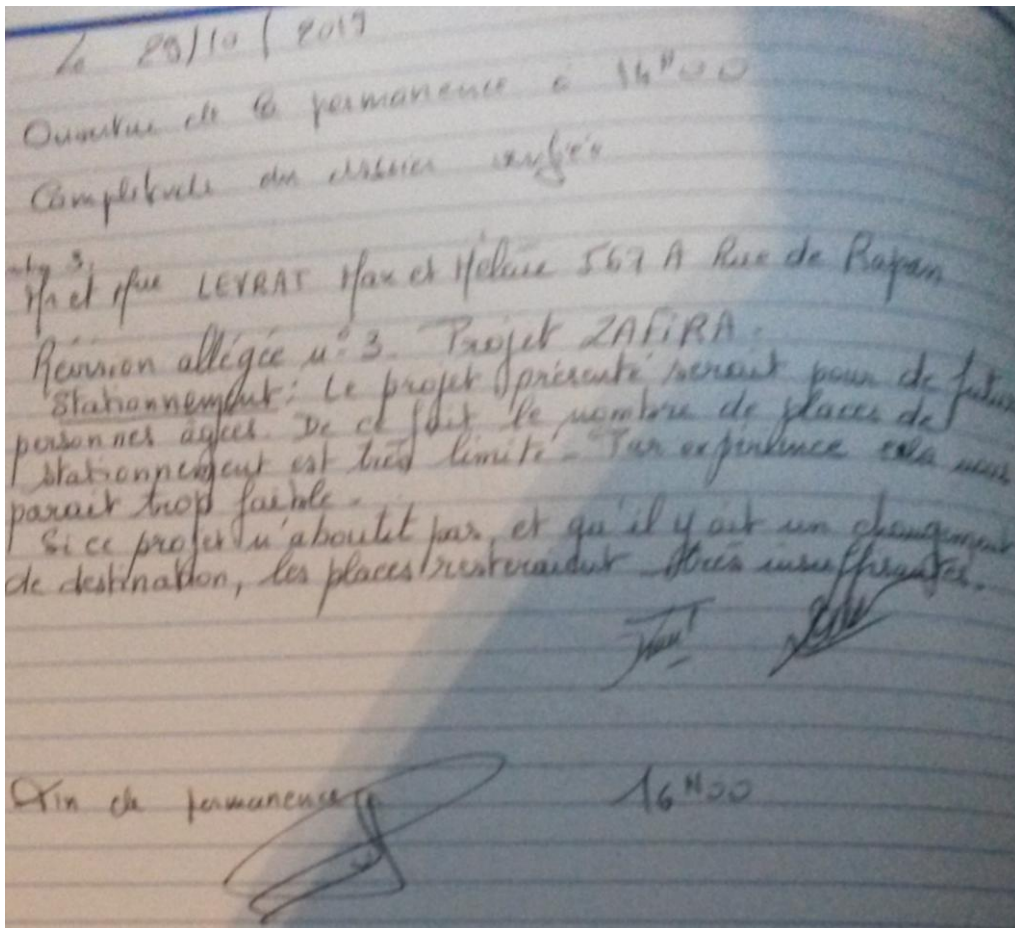 Le 29/10/2019
Ouverture de la permanence à 14H00
Complétude du dossier vérifiée
Mr et Mme LEVRAT Max et Hélène 567 A Rue de
Révision allégée n° 3. Projet ZAFIRA.
Stationnement : Le projet présenté serait pour de futures
personnes âgées. De ce fait le nombre de places de
stationnement est très limité. Par expérience cela nous
parait trop faible.
Si ce projet n'aboutit pas, et qu'il y ait un changement
de destination, les places resteraient très insuffisantes.
Fin de permanence 16H00